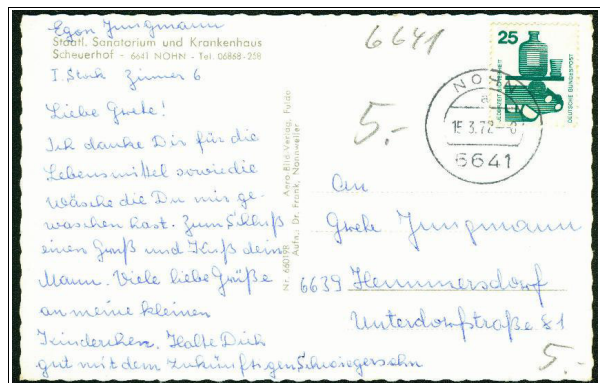 Egon Jungmann
Staatl. Sanatorium und Krankenhaus
Scheuerhof - 6641 NOHN - Tel. 06868-258
I. Stock Zimmer 6
Liebe Grete!
Ich danke Dir für die
Lebensmittel sowie die
Wäsche die Du mir ge-
waschen hast. Zum Schluß
einen Gruß und Kuß dein
Mann. Viele liebe Grüße
an meine kleinen
Kinderchen. Halte Dich
gut mit dem zukünftigen Schwiegersohn
Nr. 650198 Anro-Bild-Verlag, Fulda
Aufn.: Dr. Frank, Nannweiler
6641
5.-
25
JEDERZEIT SICHERHEIT
DEUTSCHE BUNDESPOST
NOHN
a
15.3.72
6641
An
Grete Jungmann
6639 Hemmersdorf
Unterdorfstraße 81
5.-